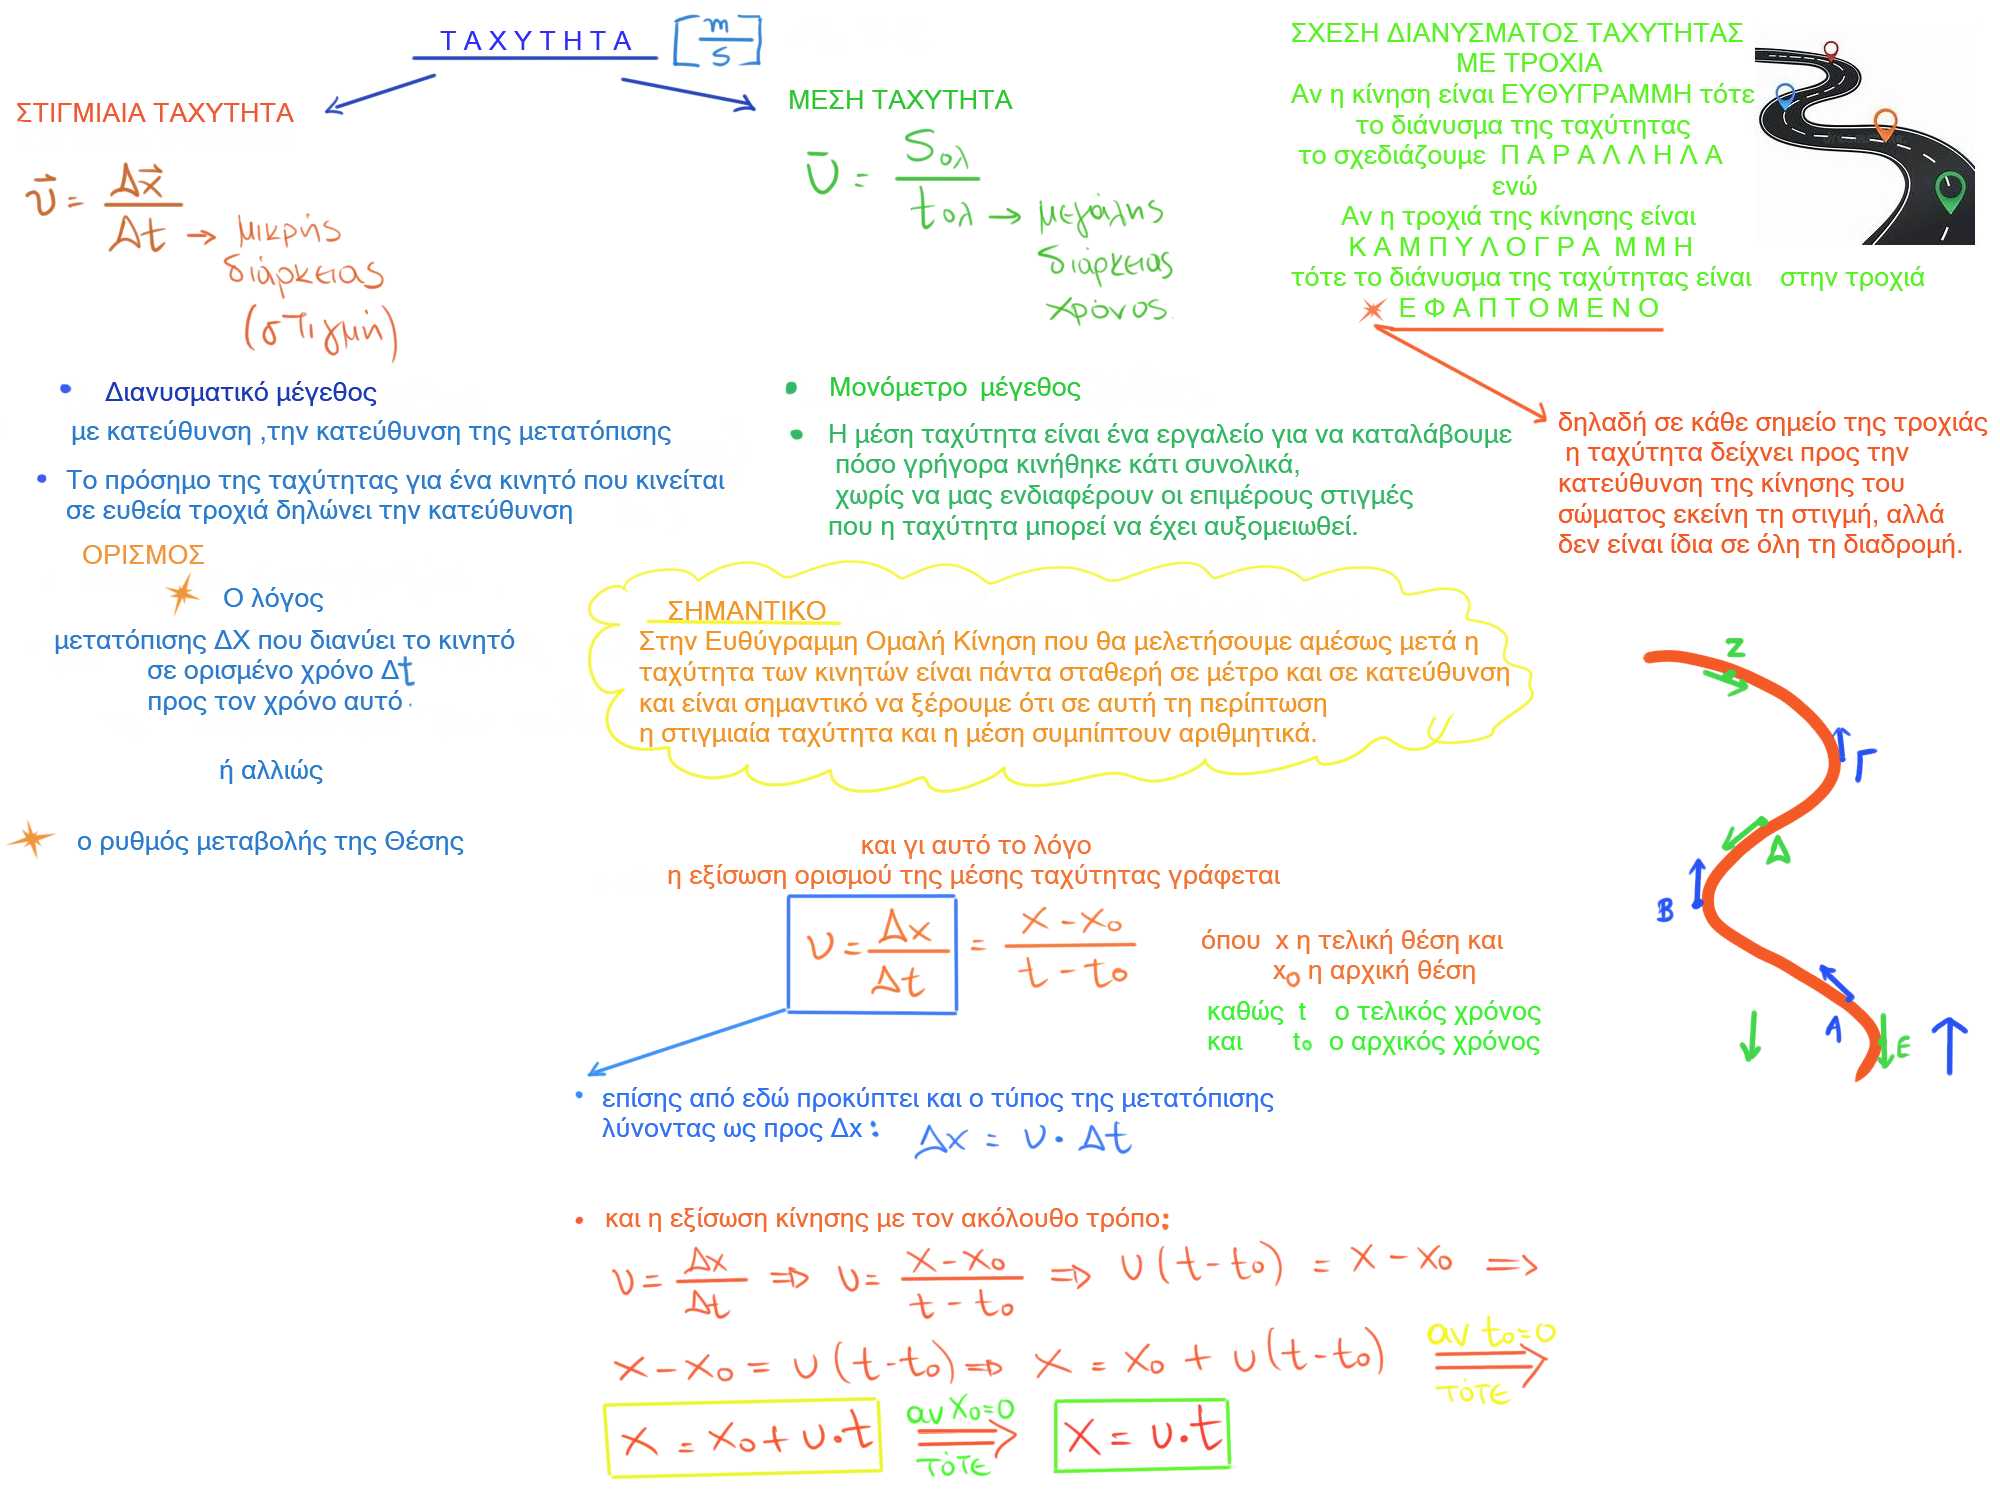 ΤΑΧΥΤΗΤΑ [m/s]
ΣΤΙΓΜΙΑΙΑ ΤΑΧΥΤΗΤΑ
υ⃗ = Δx⃗ / Δt → μικρής
διάρκειας
(στιγμή)
• Διανυσματικό μέγεθος
με κατεύθυνση ,την κατεύθυνση της μετατόπισης
• Το πρόσημο της ταχύτητας για ένα κινητό που κινείται
σε ευθεία τροχιά δηλώνει την κατεύθυνση
ΟΡΙΣΜΟΣ
Ο λόγος
μετατόπισης ΔΧ που διανύει το κινητό
σε ορισμένο χρόνο Δt
προς τον χρόνο αυτό.
ή αλλιώς
ο ρυθμός μεταβολής της Θέσης
ΜΕΣΗ ΤΑΧΥΤΗΤΑ
ῡ = Sολ / tολ → μεγάλης
διάρκειας
χρόνος
• Μονόμετρο μέγεθος
• Η μέση ταχύτητα είναι ένα εργαλείο για να καταλάβουμε
πόσο γρήγορα κινήθηκε κάτι συνολικά,
χωρίς να μας ενδιαφέρουν οι επιμέρους στιγμές
που η ταχύτητα μπορεί να έχει αυξομειωθεί.
ΣΧΕΣΗ ΔΙΑΝΥΣΜΑΤΟΣ ΤΑΧΥΤΗΤΑΣ
ΜΕ ΤΡΟΧΙΑ
Αν η κίνηση είναι ΕΥΘΥΓΡΑΜΜΗ τότε
το διάνυσμα της ταχύτητας
το σχεδιάζουμε Π Α Ρ Α Λ Λ Η Λ Α
ενώ
Αν η τροχιά της κίνησης είναι
Κ Α Μ Π Υ Λ Ο Γ Ρ Α Μ Μ Η
τότε το διάνυσμα της ταχύτητας είναι στην τροχιά
Ε Φ Α Π Τ Ο Μ Ε Ν Ο
δηλαδή σε κάθε σημείο της τροχιάς
η ταχύτητα δείχνει προς την
κατεύθυνση της κίνησης του
σώματος εκείνη τη στιγμή, αλλά
δεν είναι ίδια σε όλη τη διαδρομή.
ΣΗΜΑΝΤΙΚΟ
Στην Ευθύγραμμη Ομαλή Κίνηση που θα μελετήσουμε αμέσως μετά η
ταχύτητα των κινητών είναι πάντα σταθερή σε μέτρο και σε κατεύθυνση
και είναι σημαντικό να ξέρουμε ότι σε αυτή τη περίπτωση
η στιγμιαία ταχύτητα και η μέση συμπίπτουν αριθμητικά.
και γι αυτό το λόγο
η εξίσωση ορισμού της μέσης ταχύτητας γράφεται
υ = Δx / Δt = x - x₀ / t - t₀
όπου x η τελική θέση και
x₀ η αρχική θέση
καθώς t ο τελικός χρόνος
και t₀ ο αρχικός χρόνος
Z
Γ
Δ
B
A
E
• επίσης από εδώ προκύπτει και ο τύπος της μετατόπισης
λύνοντας ως προς Δx : Δx = υ · Δt
• και η εξίσωση κίνησης με τον ακόλουθο τρόπο:
υ = Δx / Δt ⇒ υ = x - x₀ / t - t₀ ⇒ υ(t - t₀) = x - x₀ ⇒
x - x₀ = υ(t - t₀) ⇒ x = x₀ + υ(t - t₀) αν t₀=0 τότε ⇒
x = x₀ + υ·t αν x₀=0 τότε ⇒ x = υ·t